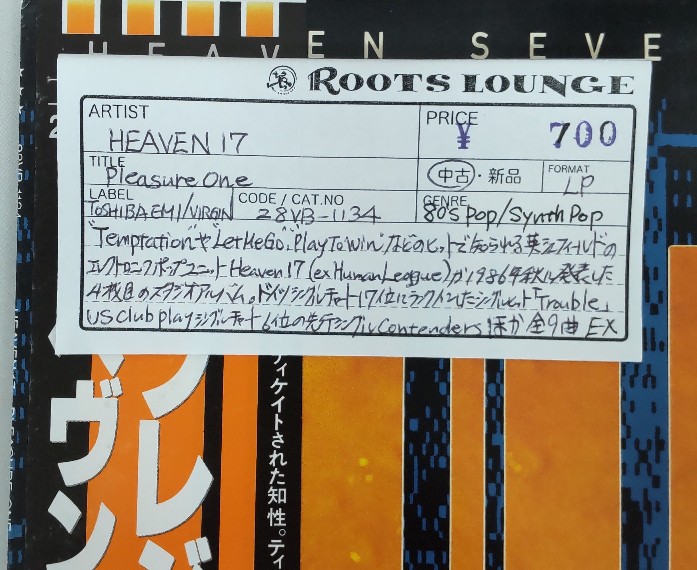 HEAVEN SEVE
ROOTS LOUNGE
ARTIST
HEAVEN 17
PRICE
¥ 700
TITLE
Pleasure One
中古・新品
FORMAT
LP
LABEL
TOSHIBA EMI/VIRGIN
CODE / CAT.NO
28VB-1134
GENRE
80's Pop/Synth Pop
"Temptation"や"Let Me Go","Play To Win"などのヒットで知られる英シェフィールドの
エレクトロニックポップユニットHeaven 17 (ex Human League)が1986年秋に発表した
4枚目のスタジオアルバム。ドイツシングルチャート17位にランクインしたシングルヒット「Trouble」
US club playシングルチャート6位の先行シングルContendersほか全9曲 EX
プレジ
ヴン
ディケイトされた知性。ティ